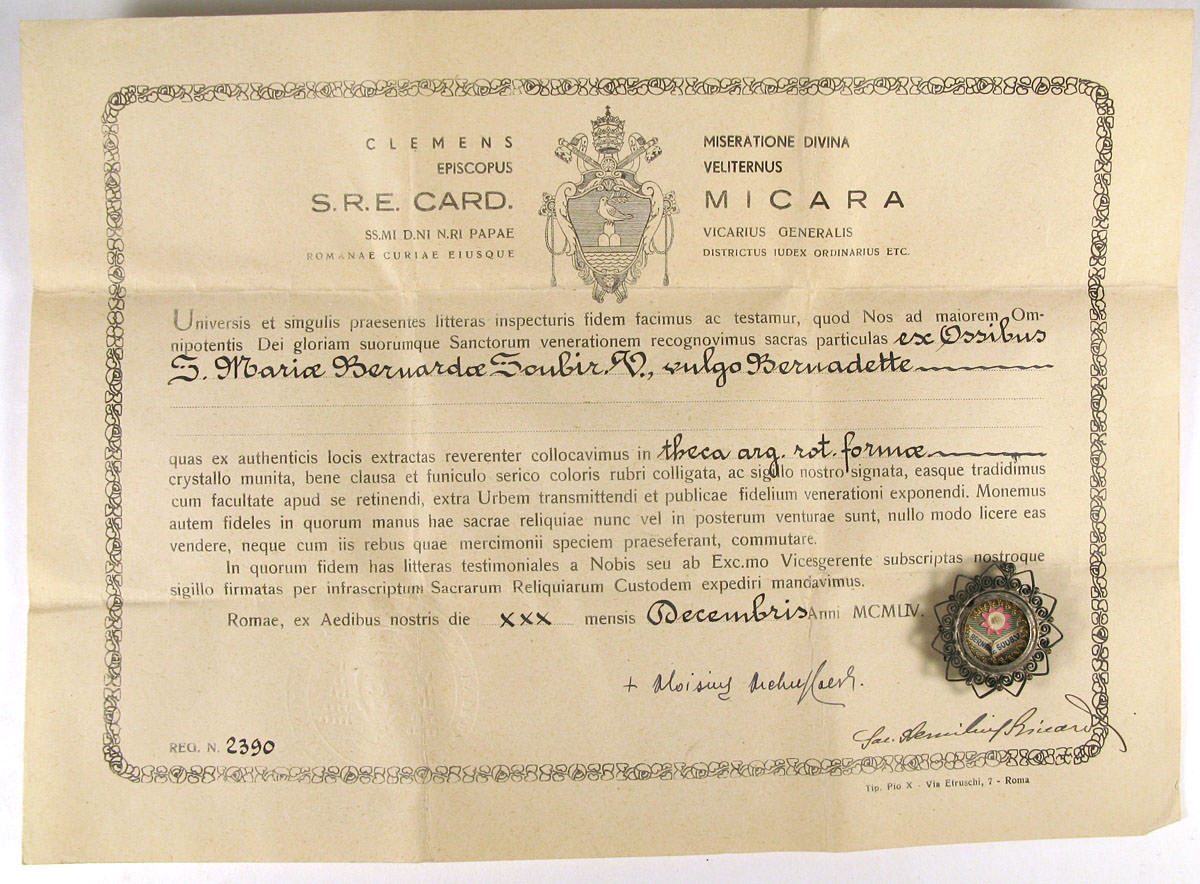 CLEMENS MISERATIONE DIVINA
EPISCOPUS VELITERNUS
S.R.E. CARD. MICARA
SS.MI D.NI N.RI PAPAE VICARIUS GENERALIS
ROMANAE CURIAE EIUSQUE DISTRICTUS IUDEX ORDINARIUS ETC.
Universis et singulis praesentes litteras inspecturis fidem facimus ac testamur, quod Nos ad maiorem Om-
nipotentis Dei gloriam suorumque Sanctorum venerationem recognovimus sacras particulas ex Ossibus
S. Mariæ Bernardæ Soubir. V., vulgo Bernadette
quas ex authenticis locis extractas reverenter collocavimus in theca arg. rot. formæ
crystallo munita, bene clausa et funiculo serico coloris rubri colligata, ac sigillo nostro signata, easque tradidimus
cum facultate apud se retinendi, extra Urbem transmittendi et publicae fidelium venerationi exponendi. Monemus
autem fideles in quorum manus hae sacrae reliquiae nunc vel in posterum venturae sunt, nullo modo licere eas
vendere, neque cum iis rebus quae mercimonii speciem praeseferant, commutare.
In quorum fidem has litteras testimoniales a Nobis seu ab Exc.mo Vicesgerente subscriptas nostroque
sigillo firmatas per infrascriptum Sacrarum Reliquiarum Custodem expediri mandavimus.
Romae, ex Aedibus nostris die XXX mensis Decembris Anni MCMLIV.
+ Aloisius
Sac.
REG. N. 2390
Tip. Pio X - Via Etruschi, 7 - Roma